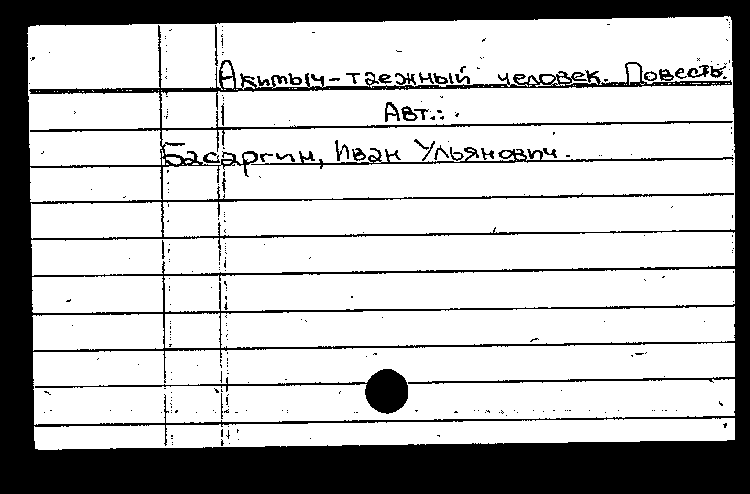 Акимыч-таежный человек. Повесть.
Авт.:.
Басаргин, Иван Ульянович.